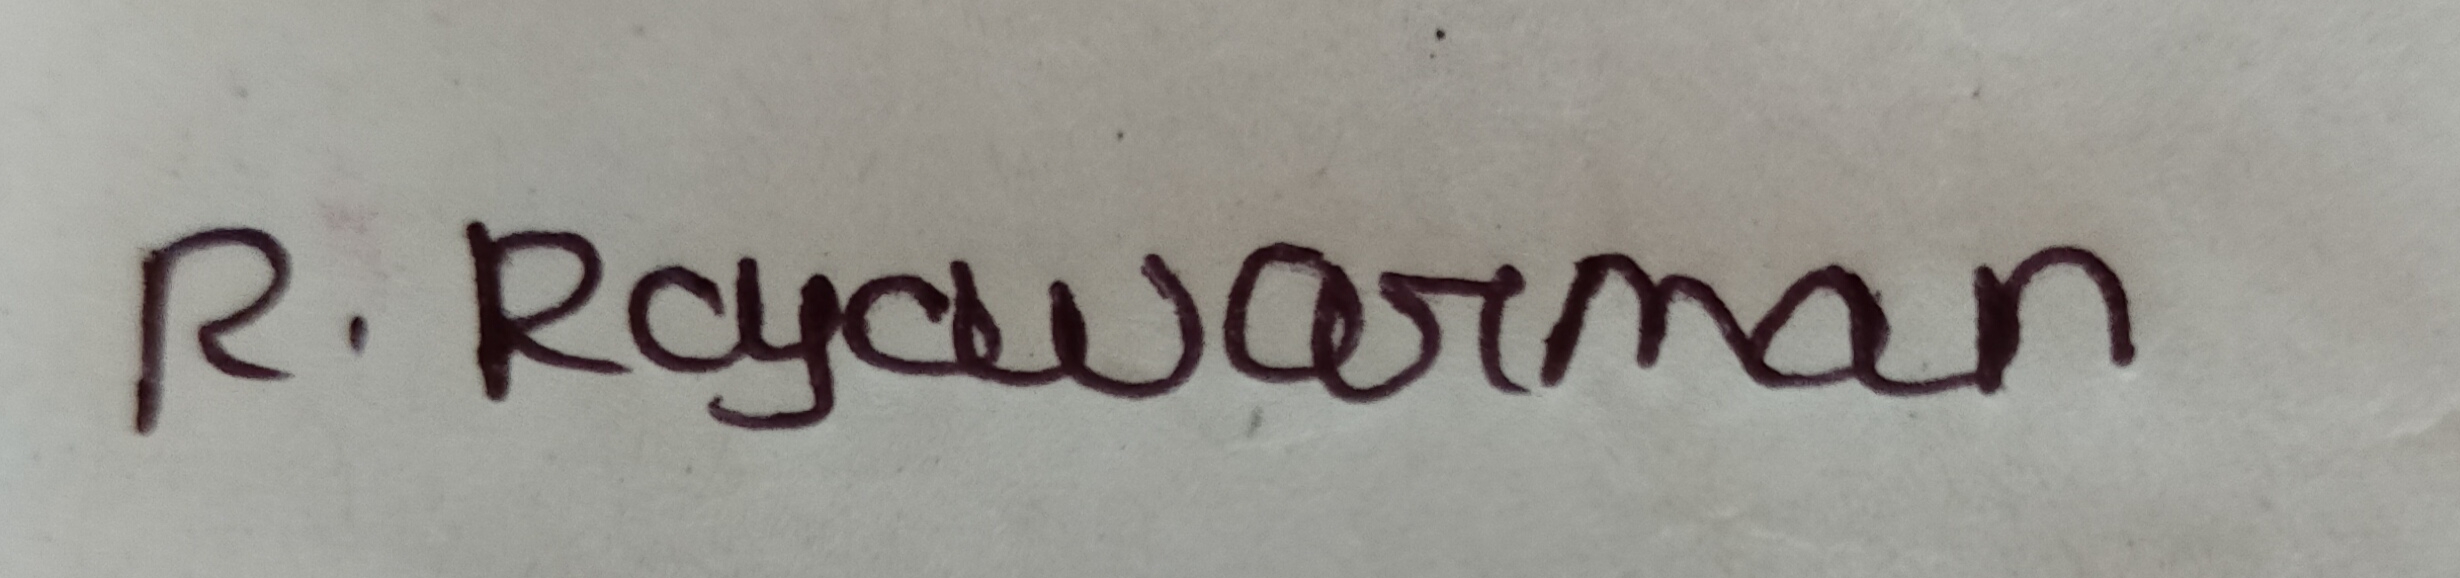 R. Rayawarman